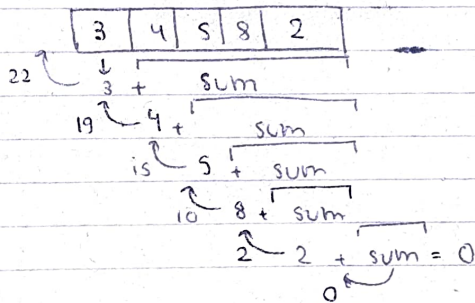 3 4 5 8 2
22 3 + sum
19 4 + sum
15 5 + sum
10 8 + sum
2 2 + sum = 0
0